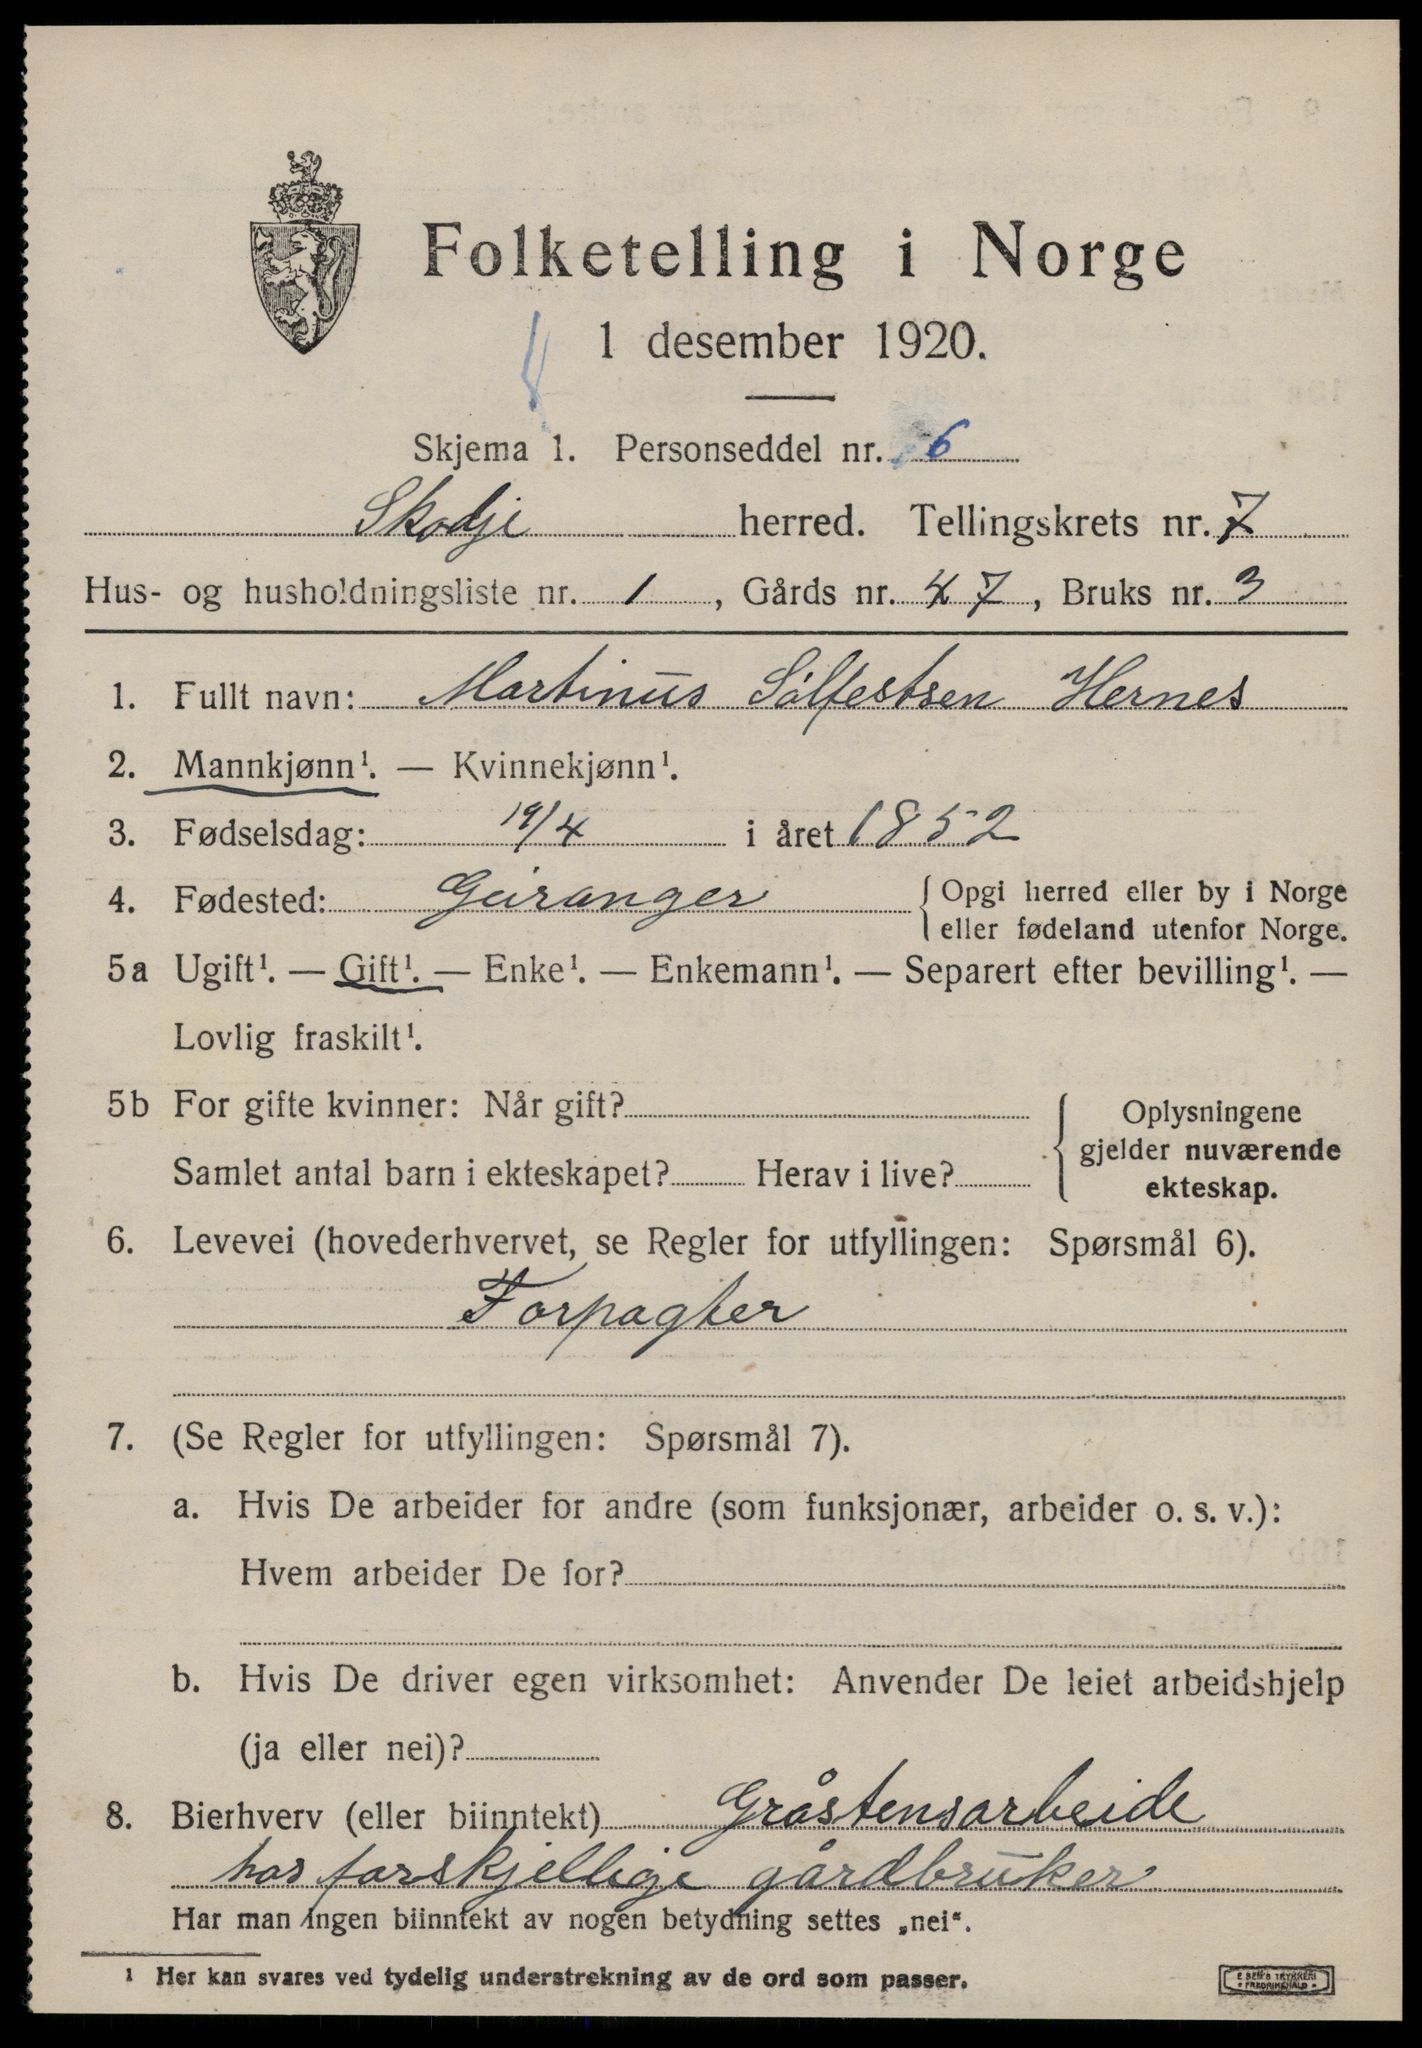 Folketelling i Norge
1 desember 1920.
Skjema 1. Personseddel nr. 6
Skodje herred. Tellingskrets nr. 7
Hus- og husholdningsliste nr. 1, Gårds nr. 47, Bruks nr. 3
1. Fullt navn: Martinus Sølfestsen Hernes
2. Mannkjønn¹. — Kvinnekjønn¹.
3. Fødselsdag: 19/4 i året 1852
4. Fødested: Geiranger { Opgi herred eller by i Norge
eller fødeland utenfor Norge.
5a Ugift¹. — Gift¹. — Enke¹. — Enkemann¹. — Separert efter bevilling¹. —
Lovlig fraskilt¹.
5b For gifte kvinner: Når gift?
Samlet antal barn i ekteskapet? Herav i live?
{ Oplysningene
gjelder nuværende
ekteskap.
6. Levevei (hovederhvervet, se Regler for utfyllingen: Spørsmål 6).
Forpagter
7. (Se Regler for utfyllingen: Spørsmål 7).
a. Hvis De arbeider for andre (som funksjonær, arbeider o. s. v.):
Hvem arbeider De for?
b. Hvis De driver egen virksomhet: Anvender De leiet arbeidshjelp
(ja eller nei)?
8. Bierhverv (eller biinntekt) Gråstensarbeide
hos forskjellige gårdbruker
Har man ingen biinntekt av nogen betydning settes „nei“.
¹ Her kan svares ved tydelig understrekning av de ord som passer.
E SEM'S TRYKKERI
FREDRIKSHALD